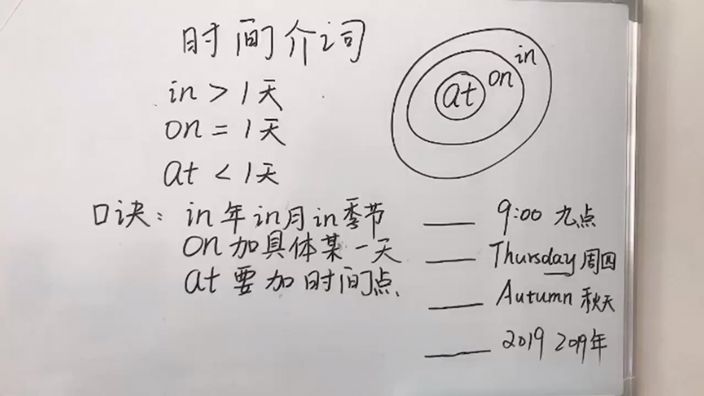 时间介词
in > 1天
on = 1天
at < 1天
in
on
at
口诀：in年in月in季节
on加具体某一天
at要加时间点
____ 9:00 九点
____ Thursday 周四
____ Autumn 秋天
____ 2019 2019年